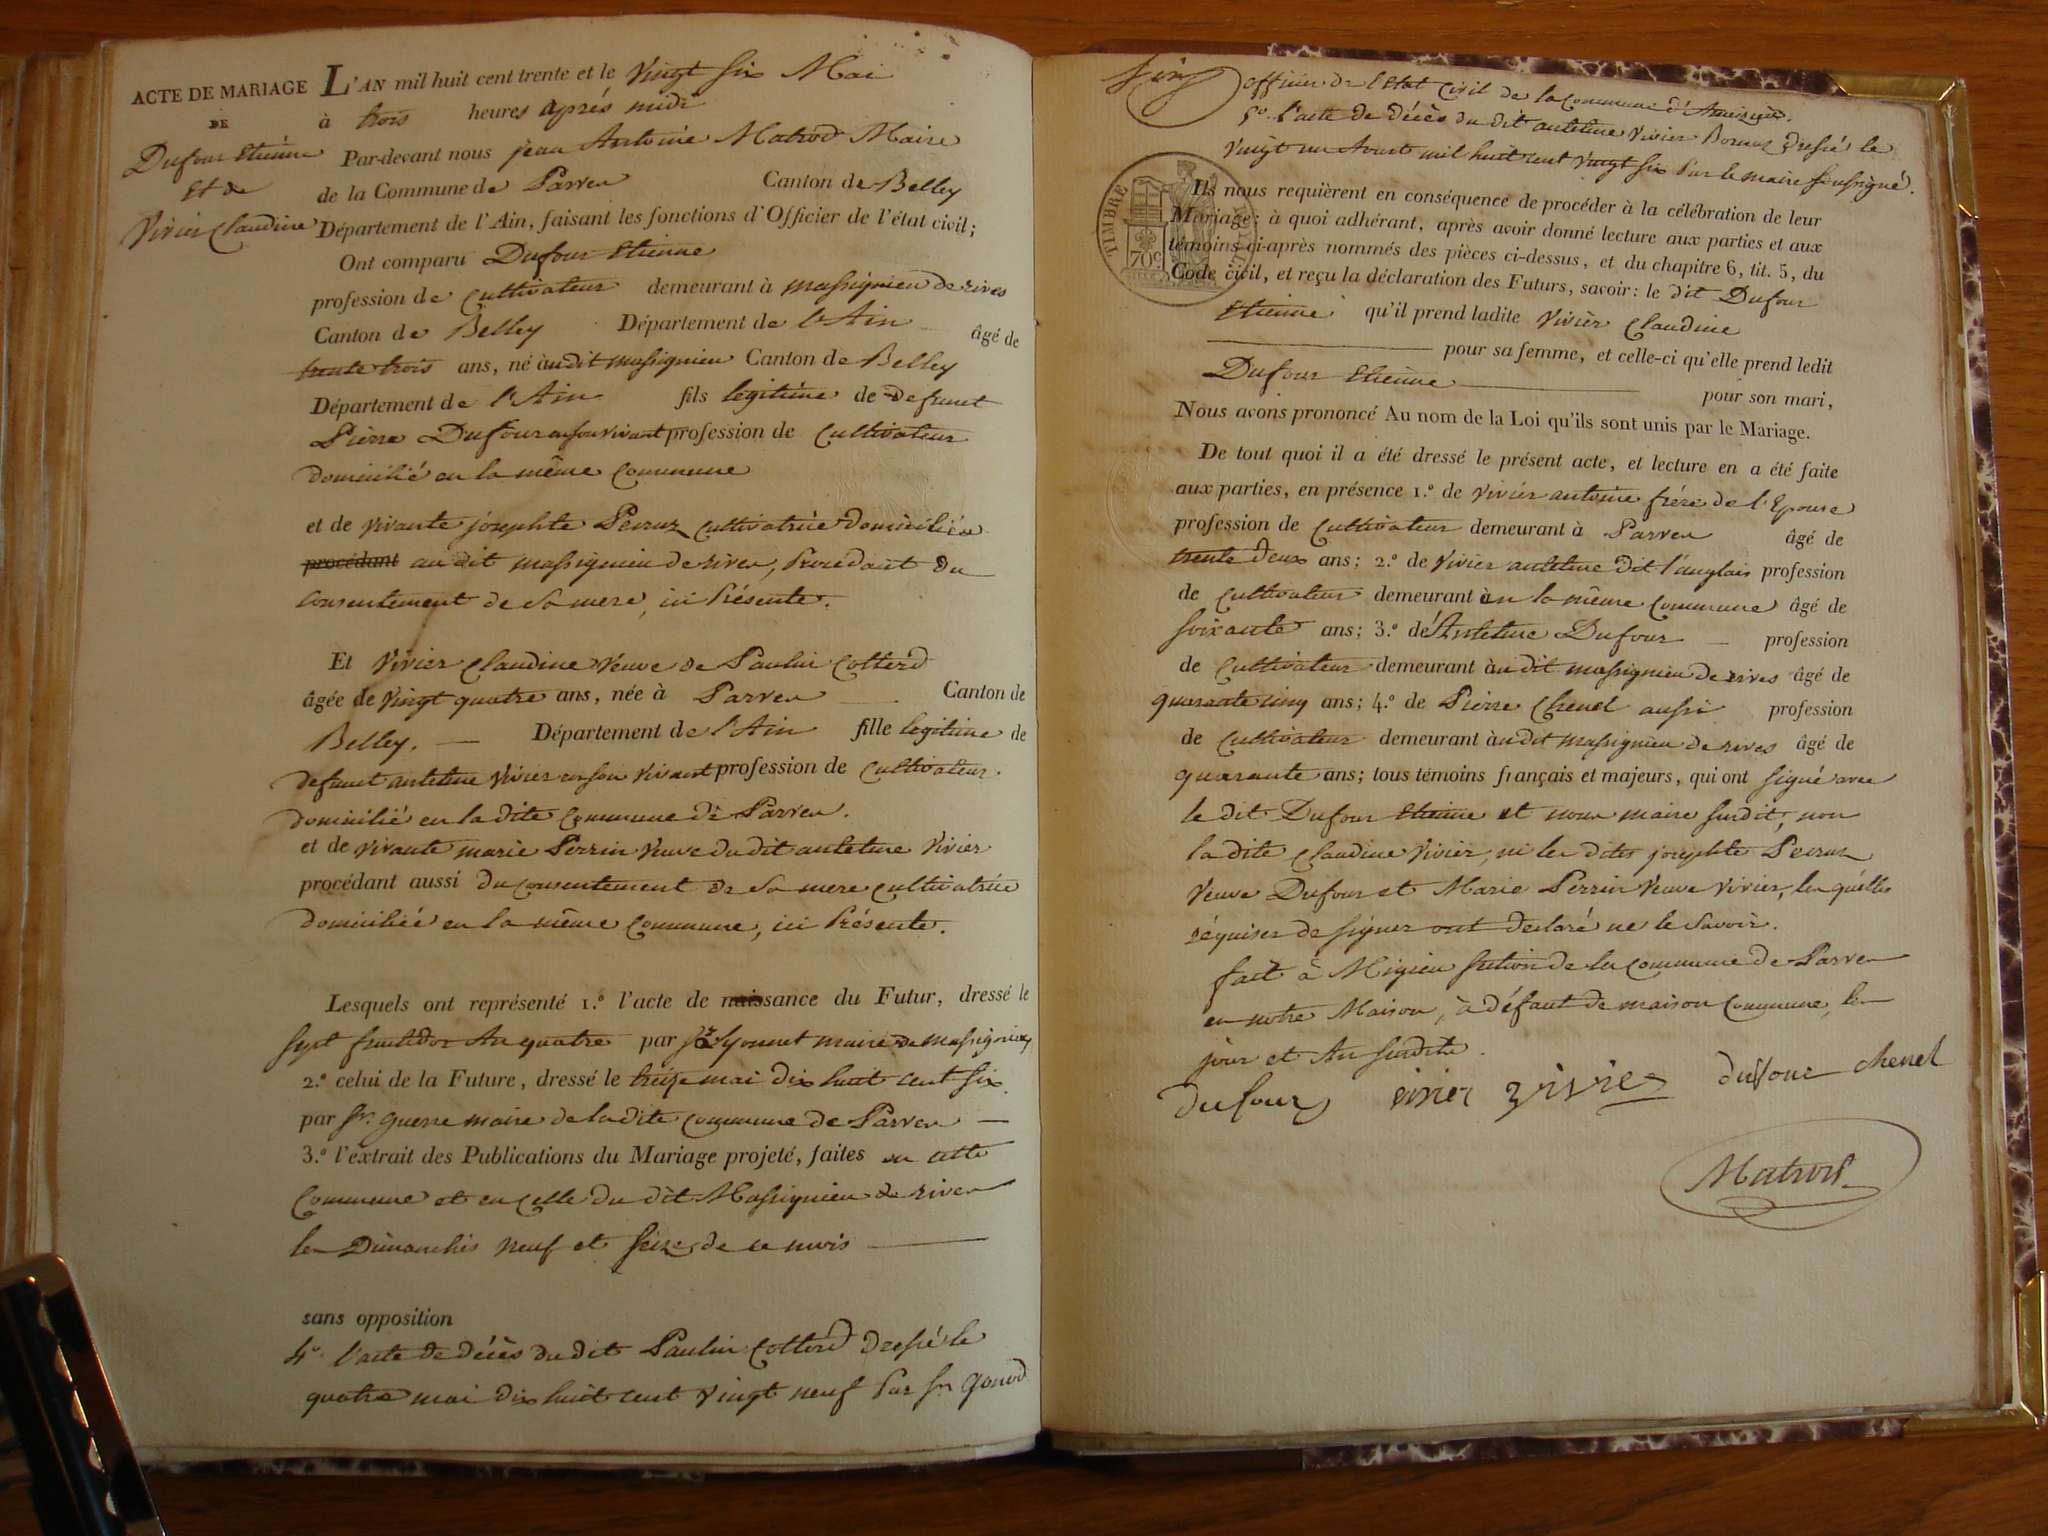 ACTE DE MARIAGE
DE
Dufour Etienne
Et de
Vivier Claudine
L'AN mil huit cent trente et le Vingt six Mai
à trois heures après midi
Par-devant nous jean Antoine Matrod Maire
de la Commune de Parves Canton de Belley
Département de l'Ain, faisant les fonctions d'Officier de l'état civil;
Ont comparu Dufour Etienne
profession de Cultivateur demeurant à massignieu de rives
Canton de Belley Département de l'Ain âgé de
trente trois ans, né audit massignieu Canton de Belley
Département de l'Ain fils légitime de defunt
Pierre Dufour en son vivant profession de Cultivateur
domicilié en la même Commune
et de vivante josephte Peiruz Cultivatrice domiciliée
procédant au dit massignieu de rives, Procedant du
consentement de sa mere, ici Présente.
Et Vivier Claudine Veuve de Paulin Cotterd
âgée de Vingt quatre ans, née à Parves Canton de
Belley. Département de l'Ain fille legitime de
defunt anteme Vivier en son vivant profession de Cultivateur.
domicilié en la dite Commune de Parves.
et de vivante marie Perrin Veuve du dit anteme Vivier
procédant aussi du consentement de sa mere cultivatrice
domiciliée en la même Commune, ici Présente.
Lesquels ont représenté 1.º l'acte de naissance du Futur, dressé le
sept fructidor An quatre par Sr Yonnet maire de massignieu
2.º celui de la Future, dressé le treize mai dix huit cent six
par Sr. Guerre maire de la dite Commune de Parves
3.º l'extrait des Publications du Mariage projeté, faites en cette
Commune et en celle du dit Massignieu de rives
les Dimanches neuf et seize de ce mois
sans opposition
4º. l'acte de décès du dit Paulin Cotterd dressé le
quatre mai dix huit cent vingt neuf Par Sr. Gonod
officier de l'Etat Civil de la Commune d'
5º. l'acte de décès du dit anteme Vivier dressé le
Vingt un Aout mil huit cent vingt six Par le maire soussigné.
TIMBRE ROYAL
70c
Ils nous requièrent en conséquence de procéder à la célébration de leur
Mariage; à quoi adhérant, après avoir donné lecture aux parties et aux
témoins ci-après nommés des pièces ci-dessus, et du chapitre 6, tit. 5, du
Code civil, et reçu la déclaration des Futurs, savoir: le dit Dufour
Etienne qu'il prend ladite Vivier Claudine
pour sa femme, et celle-ci qu'elle prend ledit
Dufour Etienne pour son mari,
Nous avons prononcé Au nom de la Loi qu'ils sont unis par le Mariage.
De tout quoi il a été dressé le présent acte, et lecture en a été faite
aux parties, en présence 1.º de Vivier antoine frère de l'Epouse
profession de Cultivateur demeurant à Parves âgé de
trente deux ans; 2.º de Vivier anteme dit l'anglais profession
de Cultivateur demeurant en la même Commune âgé de
soixante ans; 3.º de Anteme Dufour profession
de Cultivateur demeurant audit massignieu de rives âgé de
quarante cinq ans; 4.º de Pierre Chenel aussi profession
de Cultivateur demeurant audit massignieu de rives âgé de
quarante ans; tous témoins français et majeurs, qui ont signé avec
le dit Dufour Etienne et nous maire susdit, non
la dite Claudine Vivier, ni les dites josephte Peiruz
Veuve Dufour et Marie Perrin Veuve Vivier, les quelles
réquises de signer ont declaré ne le Savoir.
fait à Migieu Section de la Commune de Parves
en notre Maison, à défaut de maison Commune, les
jour et An susdits.
dufour vivier vivier dufour chenel
Matrod